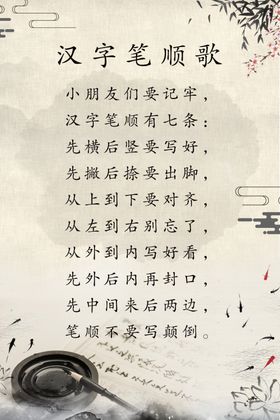 汉字笔顺歌
小朋友们要记牢，
汉字笔顺有七条：
先横后竖要写好，
先撇后捺要出脚，
从上到下要对齐，
从左到右别忘了，
从外到内写好看，
先外后内再封口，
先中间来后两边，
笔顺不要写颠倒。